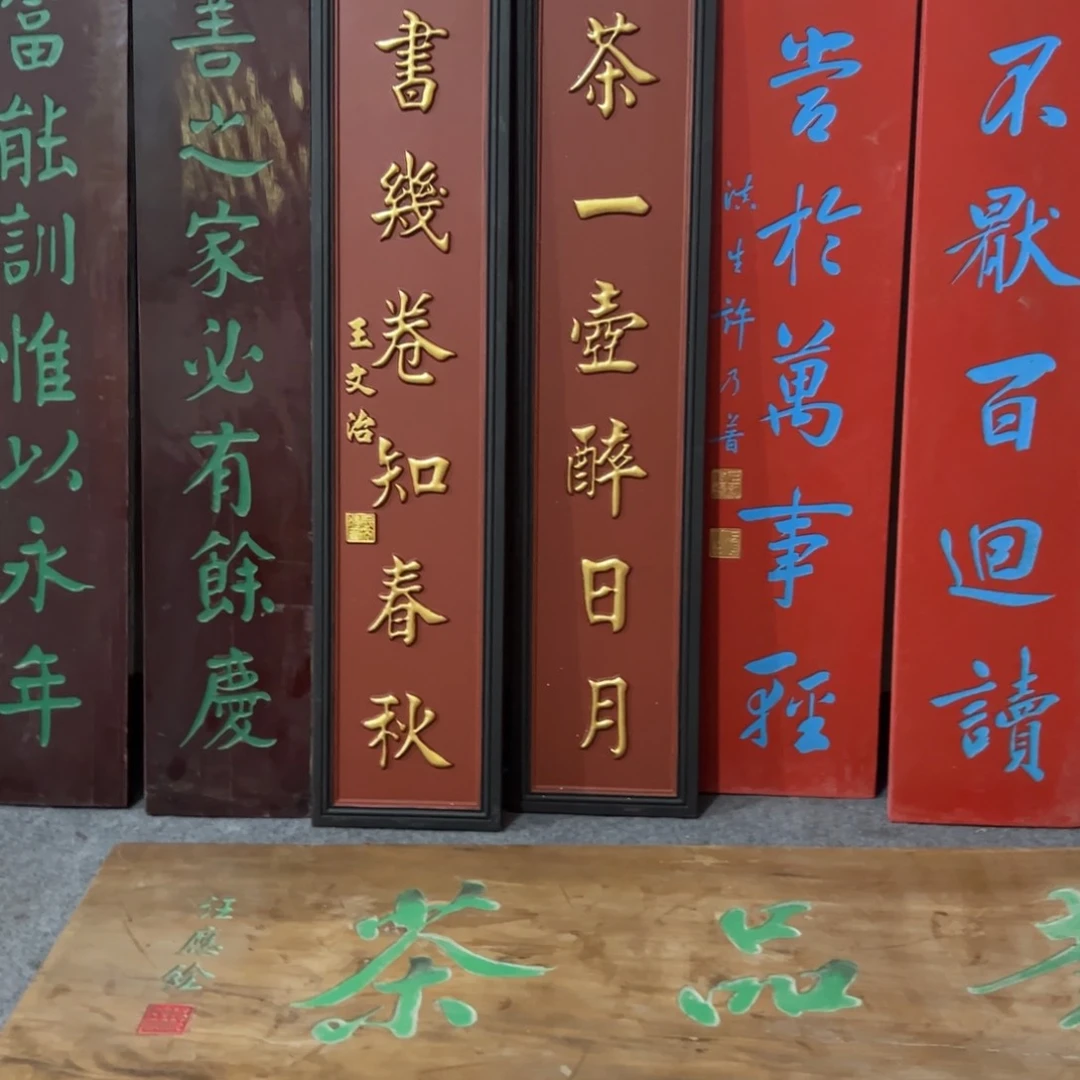 不厭百迴讀
嘗於萬事輕
滇生許乃普
茶一壺醉日月
書幾卷知春秋
王文治
善之家必有餘慶
富能訓惟以永年
品茶
汪應銓